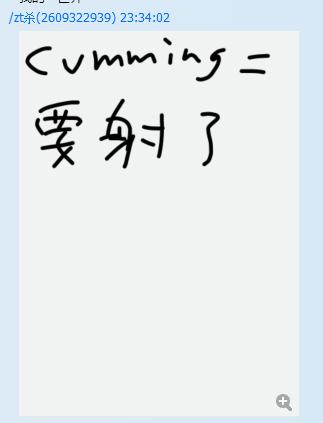 /zt杀(2609322939) 23:34:02
cumming =
要射了